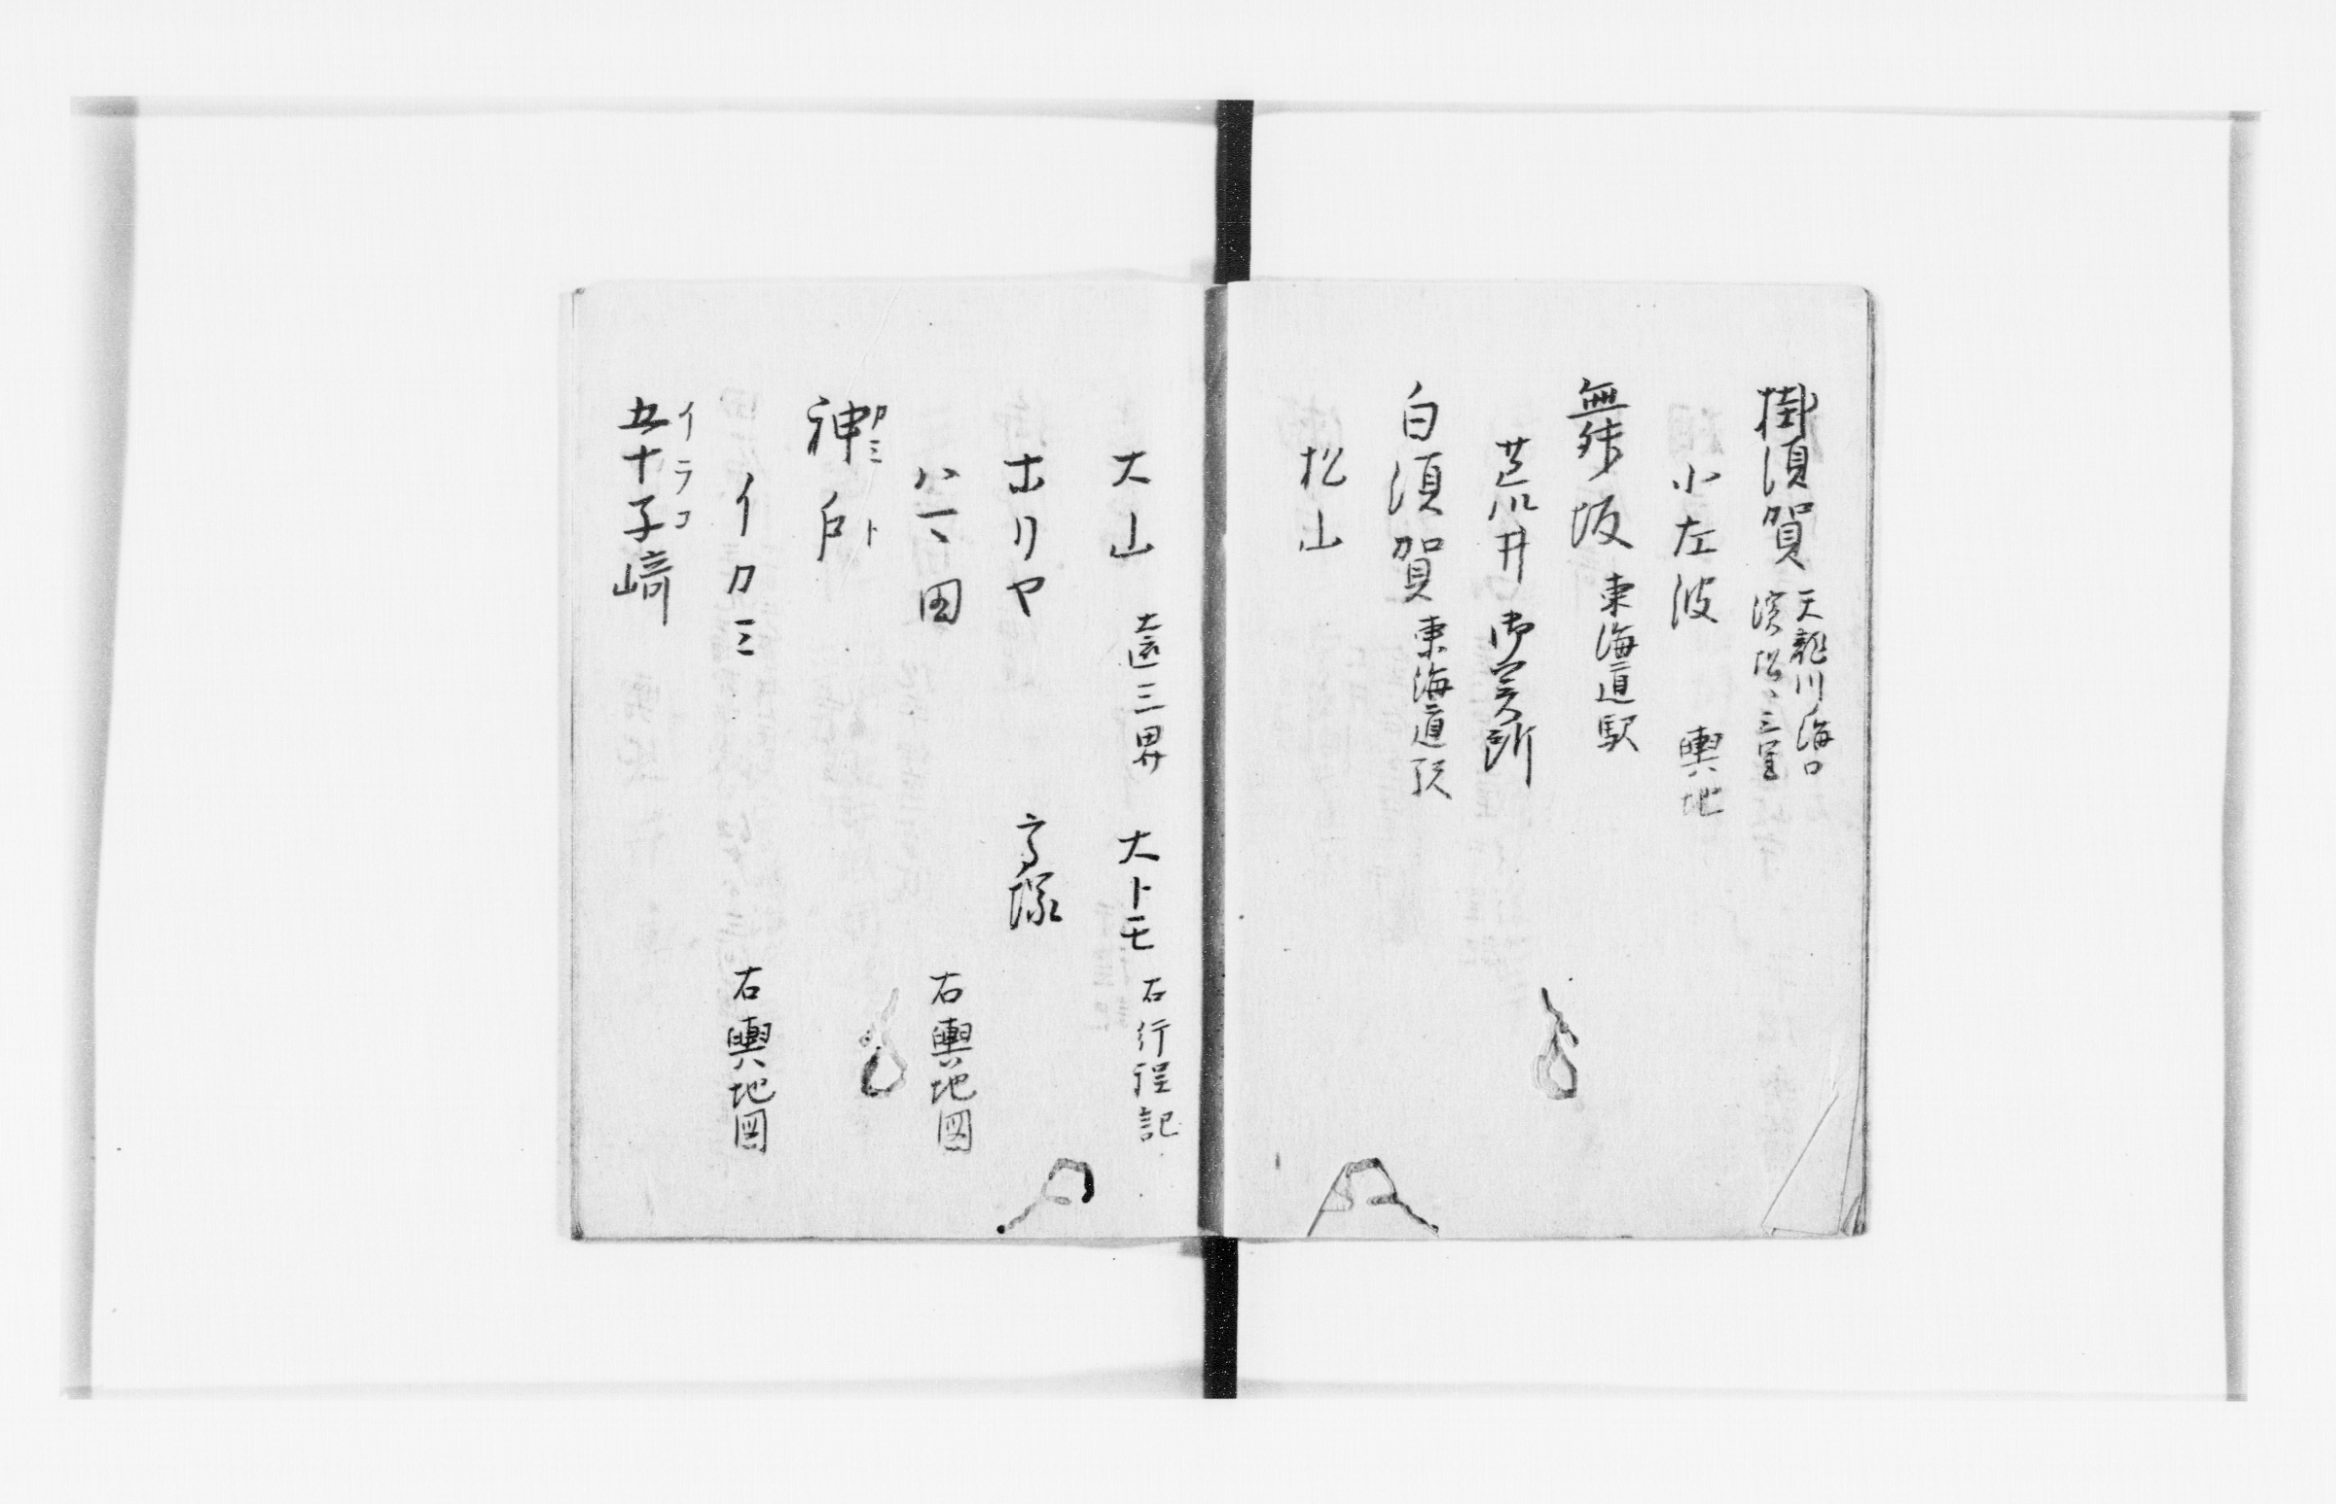 掛須賀 天龍川海口
濱松ヽ三里
小左波 輿地
舞坂 東海道駅
荒井 御関所
白須賀 東海道駅
松山
大山 遠三界 大トモ 右行程記
ホリヤ 高塚
八マ田 右輿地図
神戸 カミト
イカミ 右輿地図
五十子﨑 イラコ